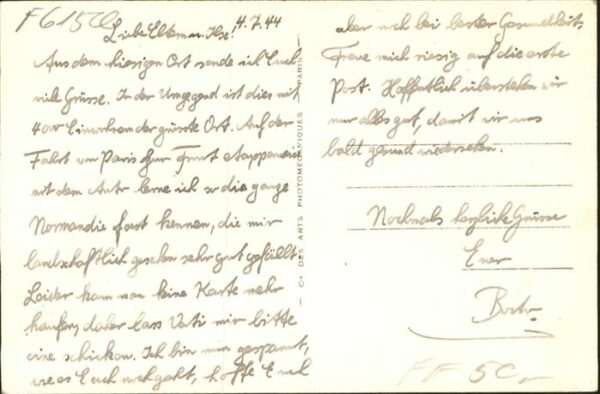 F615Cl
4.7.44
Liebe Eltern u. Ilse!
Aus dem hiesigen Ort sende ich Euch
viele Grüsse. In der Umgegend ist dies mit
4000 Einwohner der größte Ort. Auf der
Fahrt von Paris zur Front etappenweise
mit dem Auto lerne ich so die ganze
Normandie fast kennen, die mir
landschaftlich gesehen sehr gut gefällt.
Leider kann man keine Karte mehr
kaufen, daher lass Vati mir bitte
eine schicken. Ich bin nun gespannt,
wie es Euch noch geht, hoffe Euch
— Cie DES ARTS PHOTOMÉCANIQUES — PARIS —
aber noch bei bester Gesundheit.
Freue mich riesig auf die erste
Post. Hoffentlich überstehen wir
nur alles gut, damit wir uns
bald gesund wiedersehen.
Nochmals herzliche Grüsse
Euer
FF 50,-